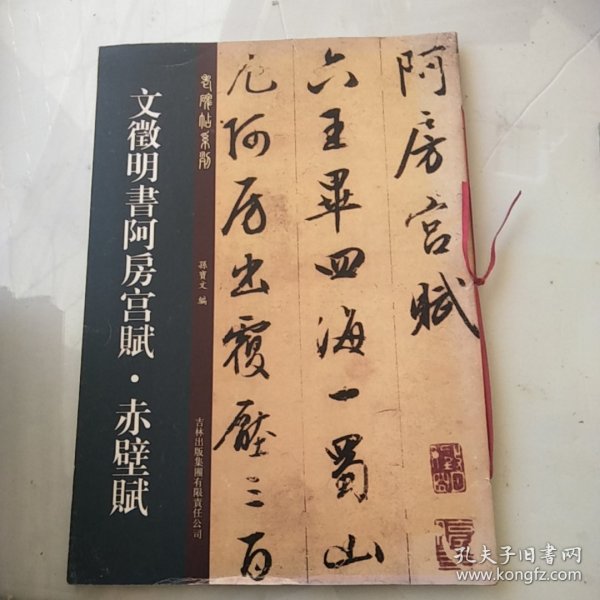 文徵明書阿房宫賦·赤壁賦
老碑帖系列
孫寶文 编
吉林出版集團有限責任公司
阿房宫賦
六王畢四海一蜀山
兀阿房出覆壓三百
孔夫子旧書网
www.kongfz.com